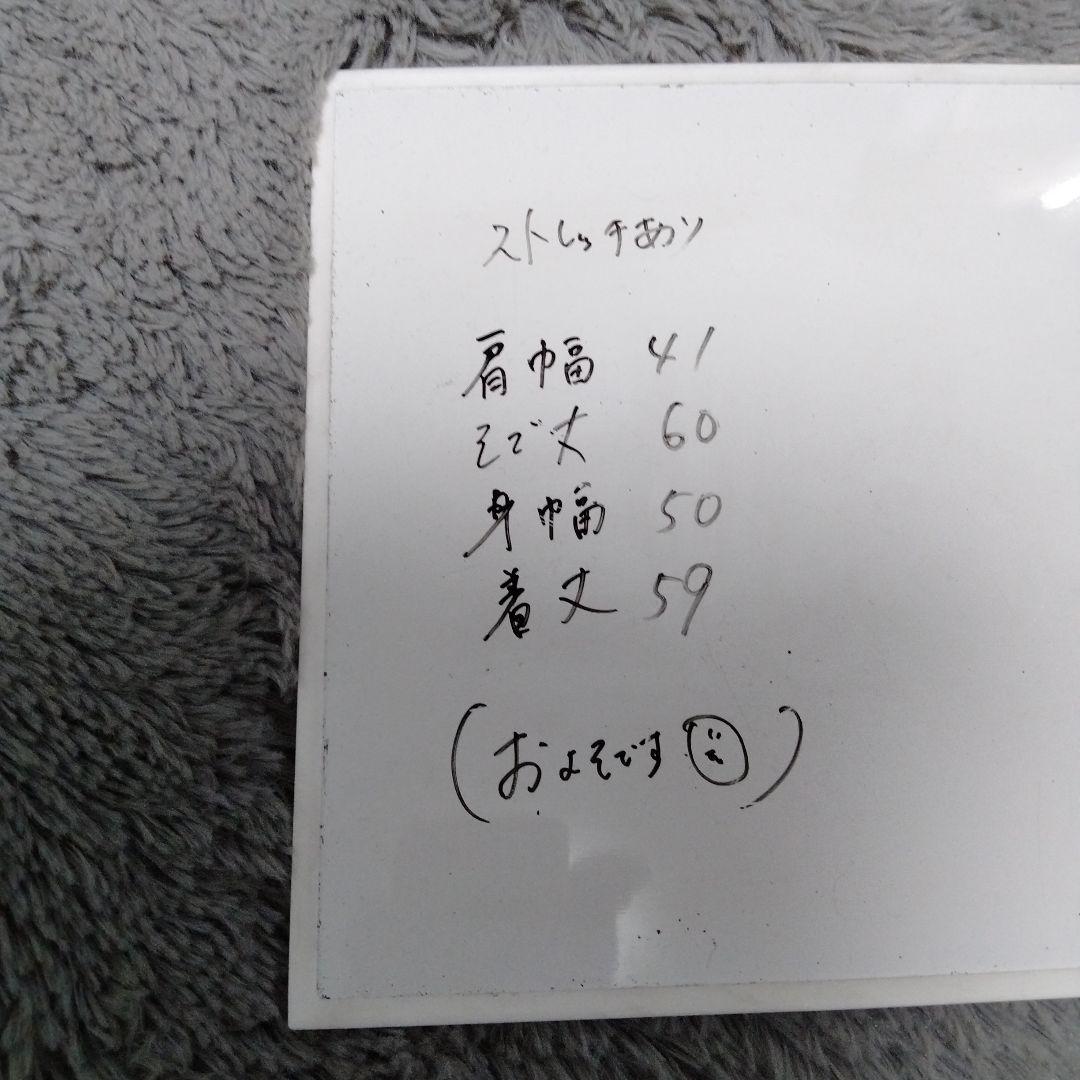 ストレッチあり
肩巾幅 41
そで丈 60
身巾幅 50
着丈 59
(およそです)